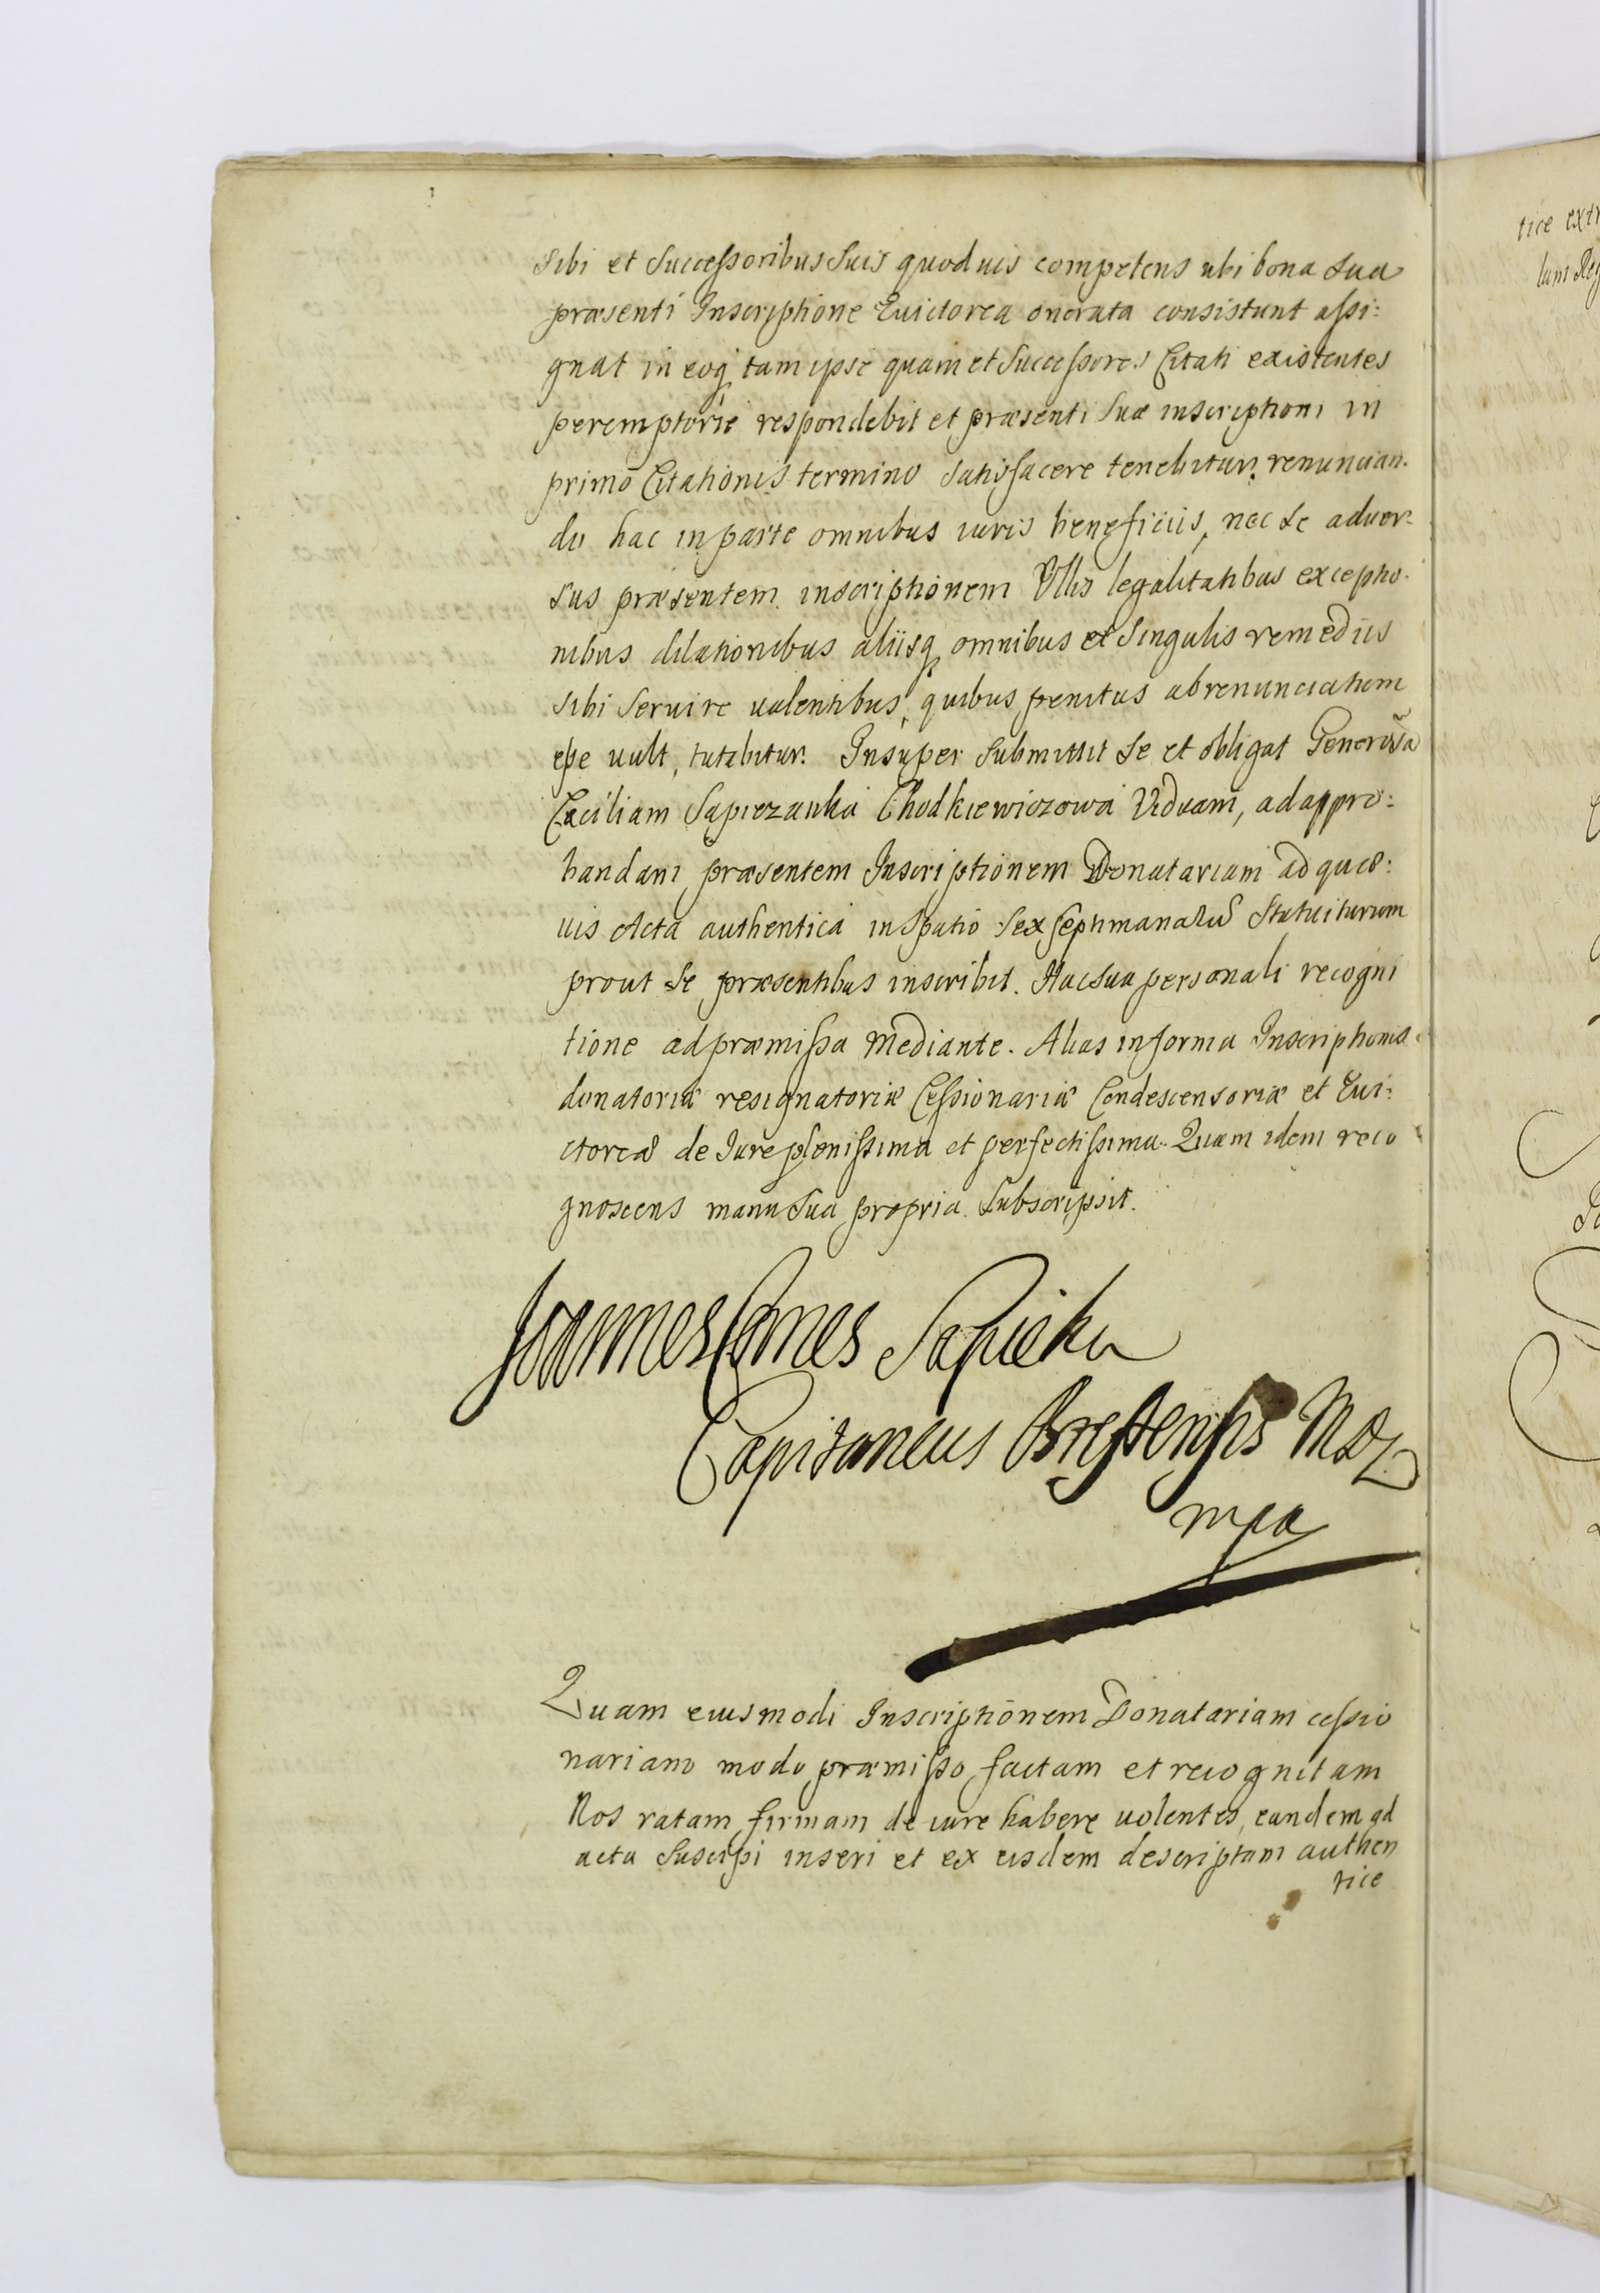 sibi et Successoribus Suis quoduis competens ubi bona Sua
præsenti Inscriptione Euictorea onerata consistunt assi:
gnat in eoq tam ipse quam et Successores Citati existentes
peremptorie respondebit et præsenti Suæ inscriptioni in
primo Citationis termino Satisfacere tenebitur, renuncian.
do hac in parte omnibus iuris beneficiis, nec Se aduer-
sus præsentem inscriptionem Ullis legalitatibus exceptio.
nibus dilationibus aliisq omnibus et Singulis remediis
sibi Seruire ualentibus, quibus penitus abrenunciatum
esse uult, tutabitur. Insuper Submittit Se et obligat Generosã
Cæciliam Sapiezanka Chodkiewiczowa Viduam, ad appro:
bandam præsentem Inscriptionem Donatariam ad quæ:
uis Acta authentica in Spatio Sex Septimanarũ Statuiturum
prout Se præsentibus inscribit. Hac Sua personali recogni
tione ad præmissa Mediante. Alias in forma Inscriptionis
donatoriæ resignatoriæ Cessionariæ Condescensoriæ et Eui:
ctoreæ de Jure plenissima et perfectissima. Quam idem reco
gnoscens manu Sua propria Subscripsit.
Joannes Comes Sapieha
Capitaneus Brestensis
mpa
Quam eiusmodi Inscriptionem Donatariam cessio
nariam modo præmisso factam et recognitam
Nos ratam firmam de iure habere uolentes, eandem ad
acta Suscipi inseri et ex eisdem descriptam authen
tice
tice extr